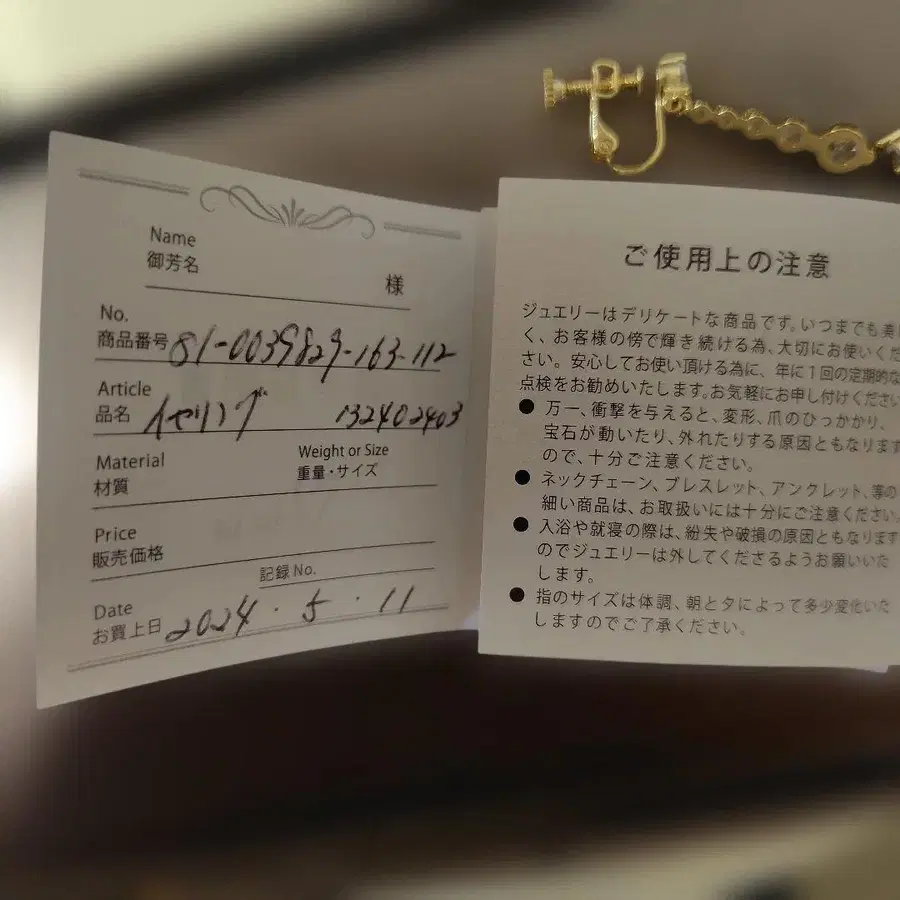 Name
御芳名
様
No.
商品番号 81-0039829-163-112
Article
品名 イヤリング 132402403
Material
材質
Weight or Size
重量・サイズ
Price
販売価格
記録No.
Date
お買上日 2024.5.11
ご使用上の注意
ジュエリーはデリケートな商品です。いつまでも美し
く、お客様の傍で輝き続ける為、大切にお使いくだ
さい。安心してお使い頂ける為に、年に1回の定期的な
点検をお勧めいたします。お気軽にお申し付けください
● 万一、衝撃を与えると、変形、爪のひっかかり、
宝石が動いたり、外れたりする原因ともなります
ので、十分ご注意ください。
● ネックチェーン、ブレスレット、アンクレット、等の
細い商品は、お取扱いには十分にご注意ください。
● 入浴や就寝の際は、紛失や破損の原因ともなります
のでジュエリーは外してくださるようお願いいた
します。
● 指のサイズは体調、朝と夕によって多少変化いた
しますのでご了承ください。